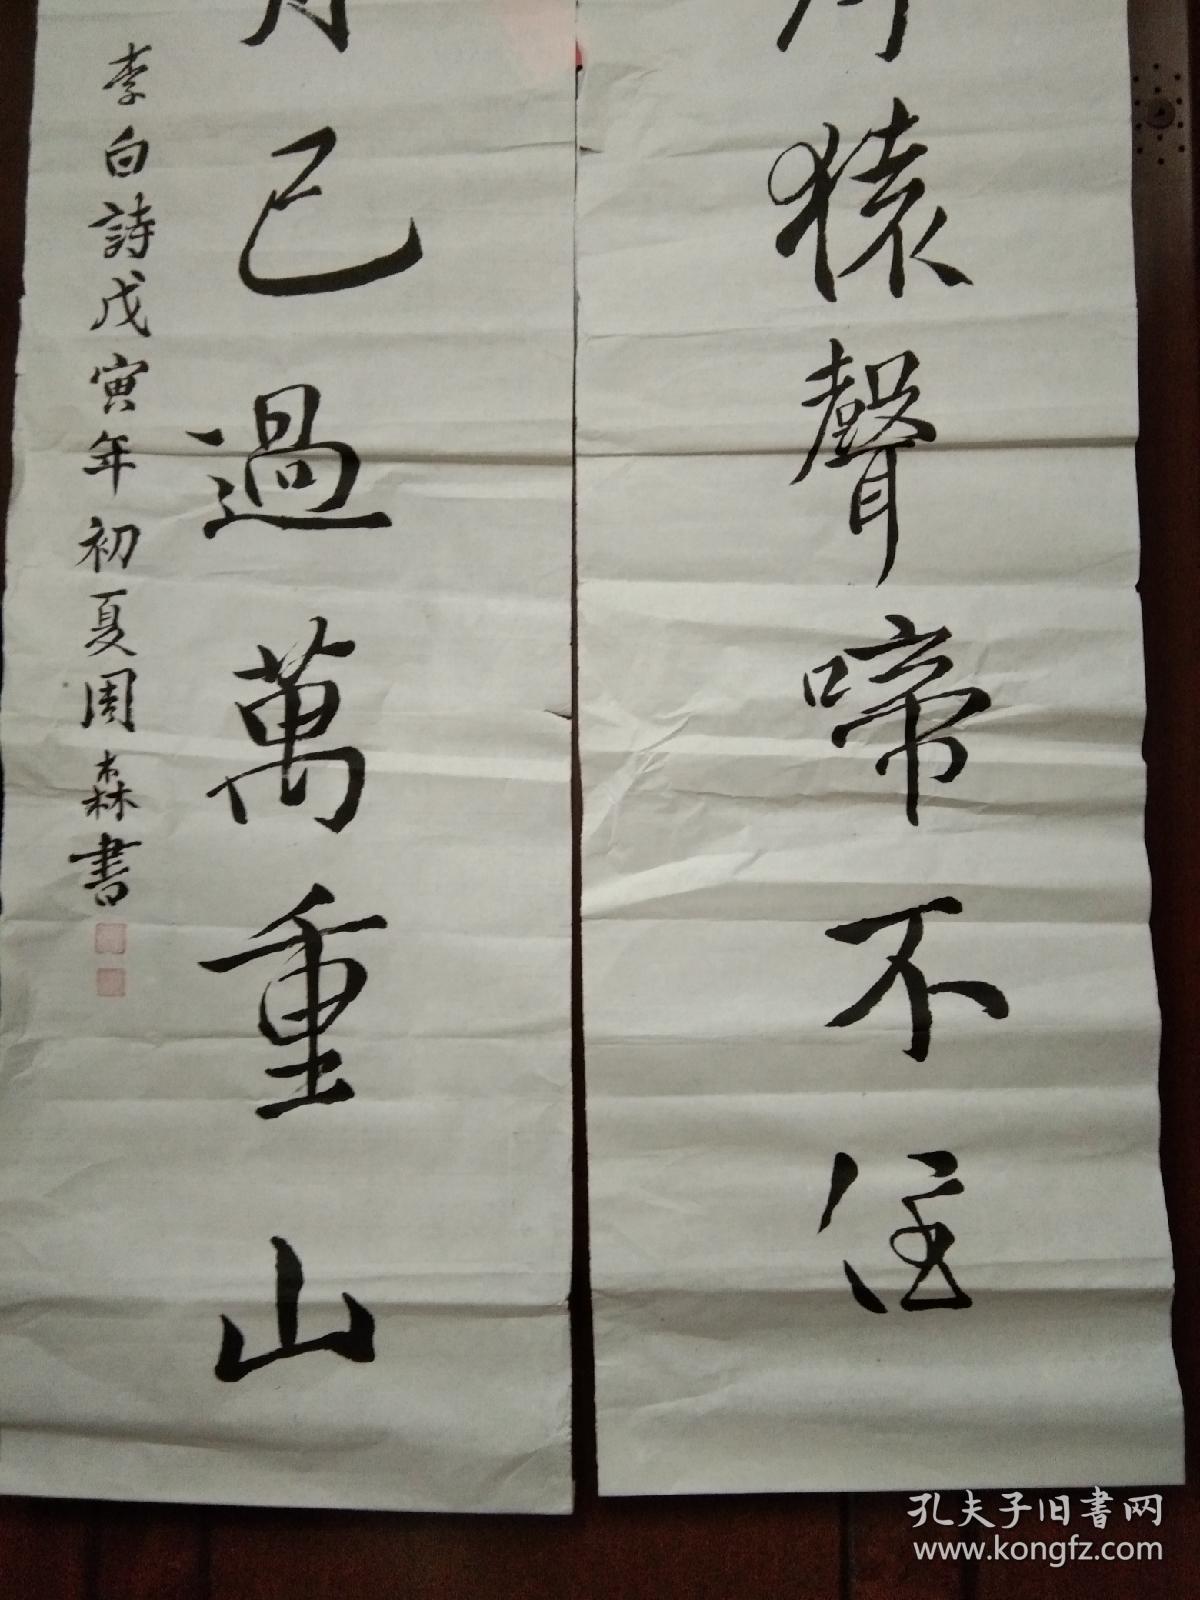 猿聲啼不住
已過萬重山
李白詩戊寅年初夏周森書
孔夫子旧書网
www.kongfz.com